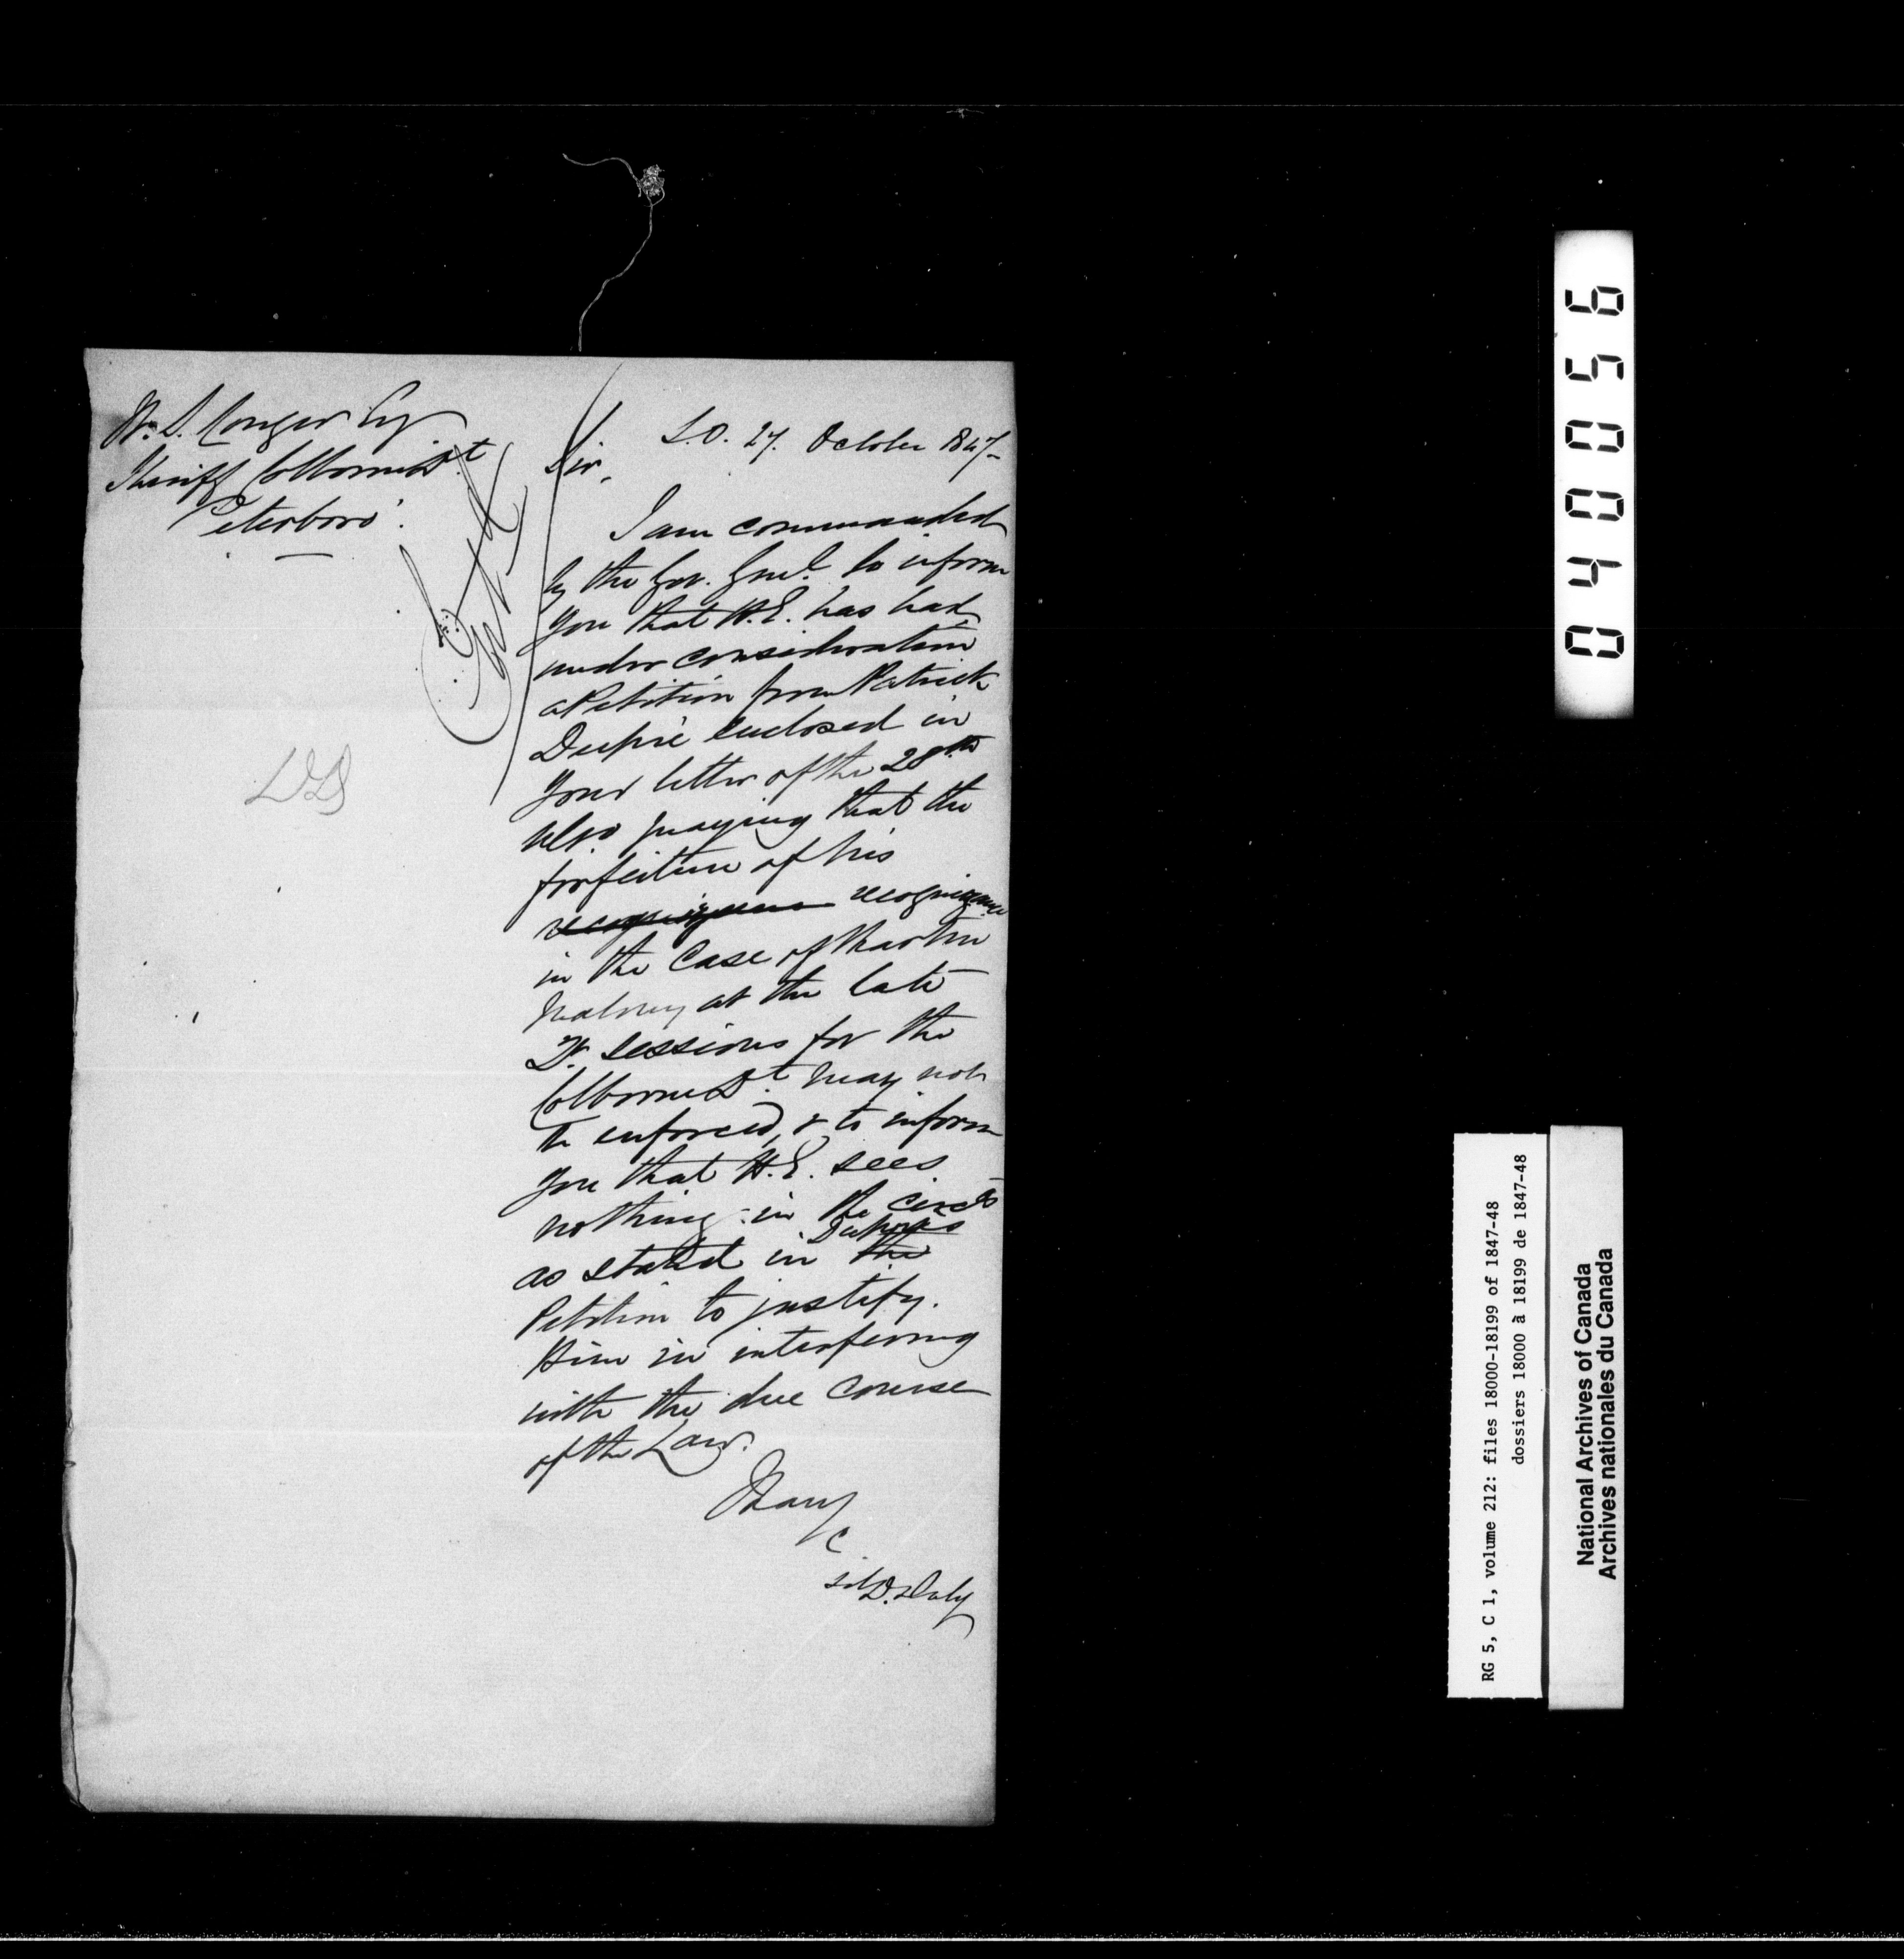 W. S. Conger Esq
Sheriff Colborne Dt
Peterboro'.
S.O. 27. October 1847
Sir,
I am commanded
by the Gov. Genl. to inform
you that H.E. has had
under consideration
a Petition from Patrick
enclosed in
your letter of the 28th
ulto. praying that the
forfeiture of his
recognizance
in the case of Martin
Maloney at the late
Qr. Sessions for the
Colborne Dt. may not
be enforced, & to inform
you that H.E. sees
nothing in the circes
as stated in the
Petition to justify
Him in interfering
with the due course
of the Law.
I have
&c
D. Daly
040056
RG 5, C 1, volume 212: files 18000-18199 of 1847-48
dossiers 18000 à 18199 de 1847-48
National Archives of Canada
Archives nationales du Canada